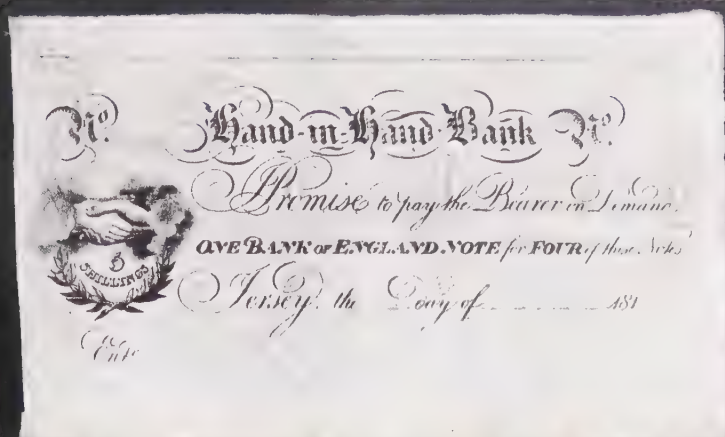 No. Hand-in-Hand Bank No.
I Promise to pay the Bearer on Demand
ONE BANK OF ENGLAND NOTE for FOUR of these Notes
5
SHILLINGS
Jersey the Day of 181
Entd